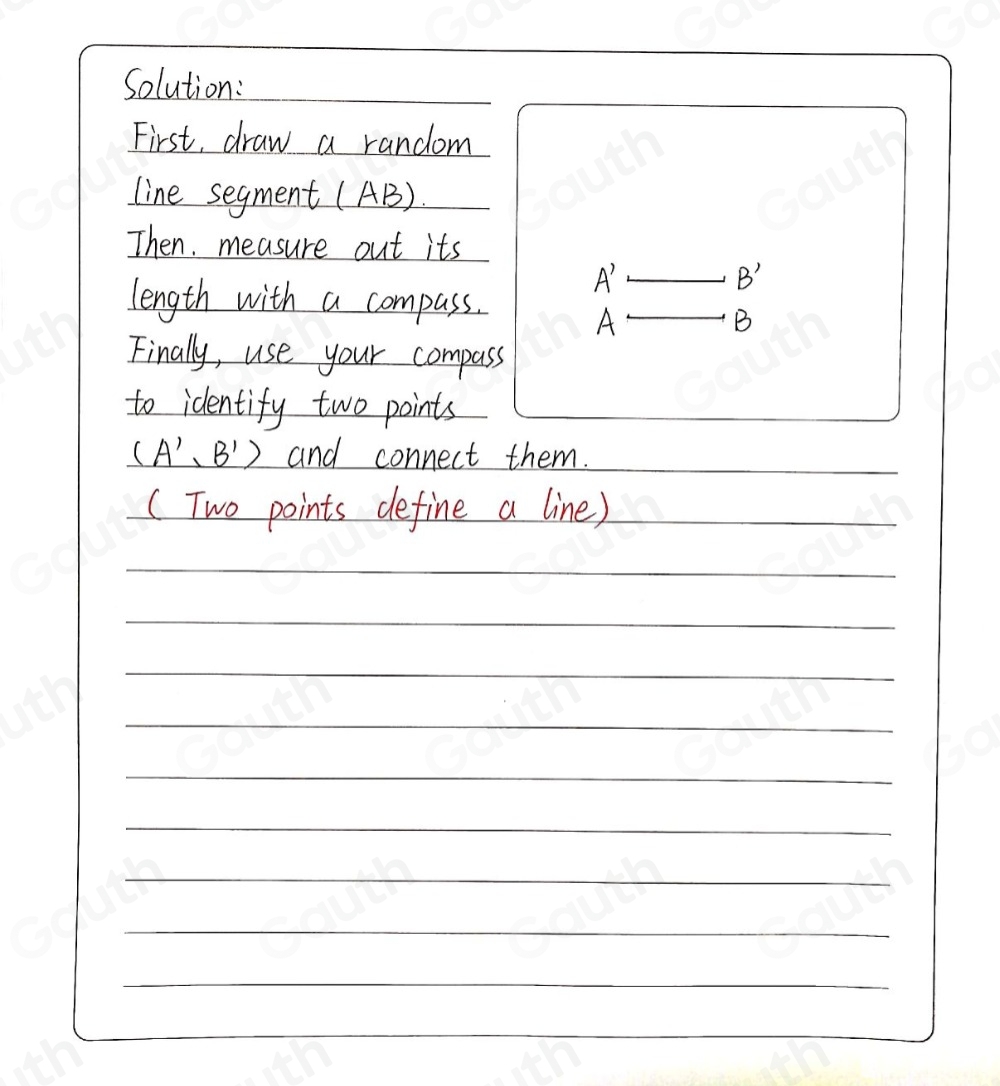 Solution:
First, draw a random
line segment (AB).
Then, measure out its
length with a compass.
Finally, use your compass
to identify two points
(A'、B') and connect them.
(Two points define a line)
A' B'
A B
Gauth